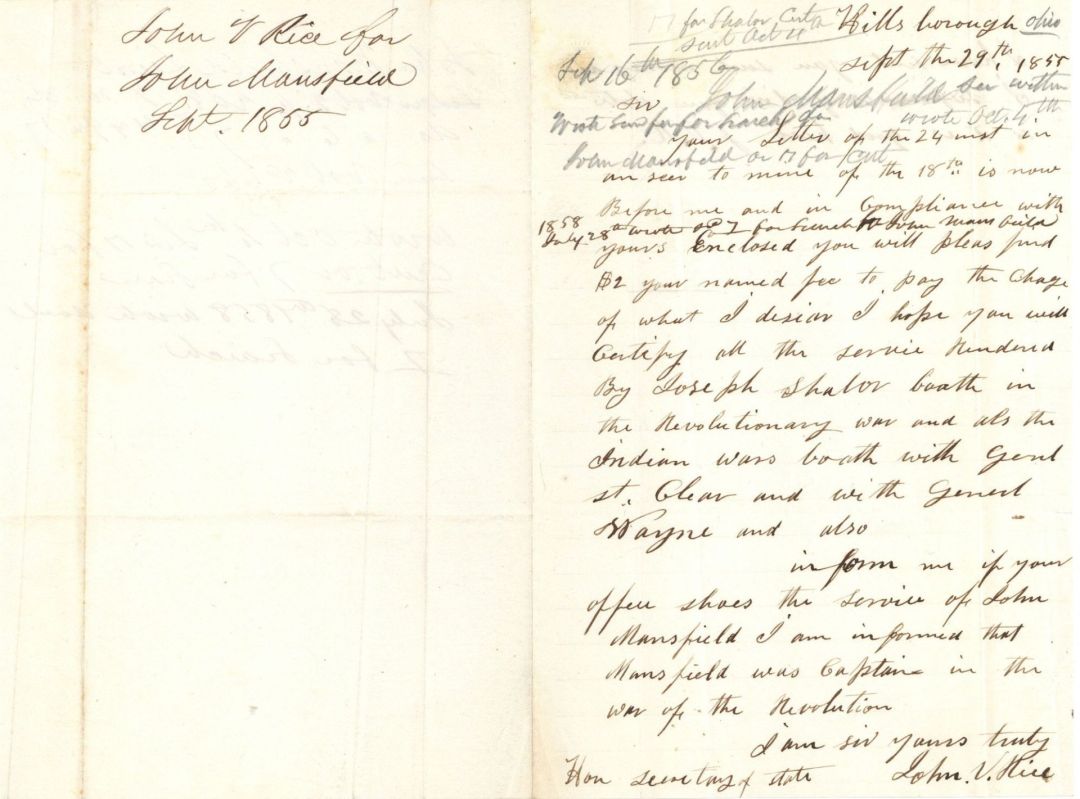 John V Rice for
John Mansfield
Sept. 1855
for Shalor, Cert
sent Oct 4th
Hillsborough ohio
sept the 29th. 1855
Sep 16th 1856
sir
John Mansfield see within
wrote Oct. 4th
your Letter of the 24 inst in
John Mansfield or for Cert
an seer to mine of the 18th is now
Before me and in Compliance with
1858
July 28th wrote for search John Mansfield
yours Enclosed you will pleas find
$2 your named fee to pay the Chage
of what I desiar I hope you will
Certify all the service Rendered
By Joseph Shalor boath in
the Revolutionary war and als the
Indian wars boath with Genl
st. Clear and with Generl
Wayne and also
in form me if your
offeu shoes the service of John
Mansfield I am informed that
Mansfield was Captain in the
war of the Revolution
I am sir yours truly
Hon secretary of state John. V. Rice